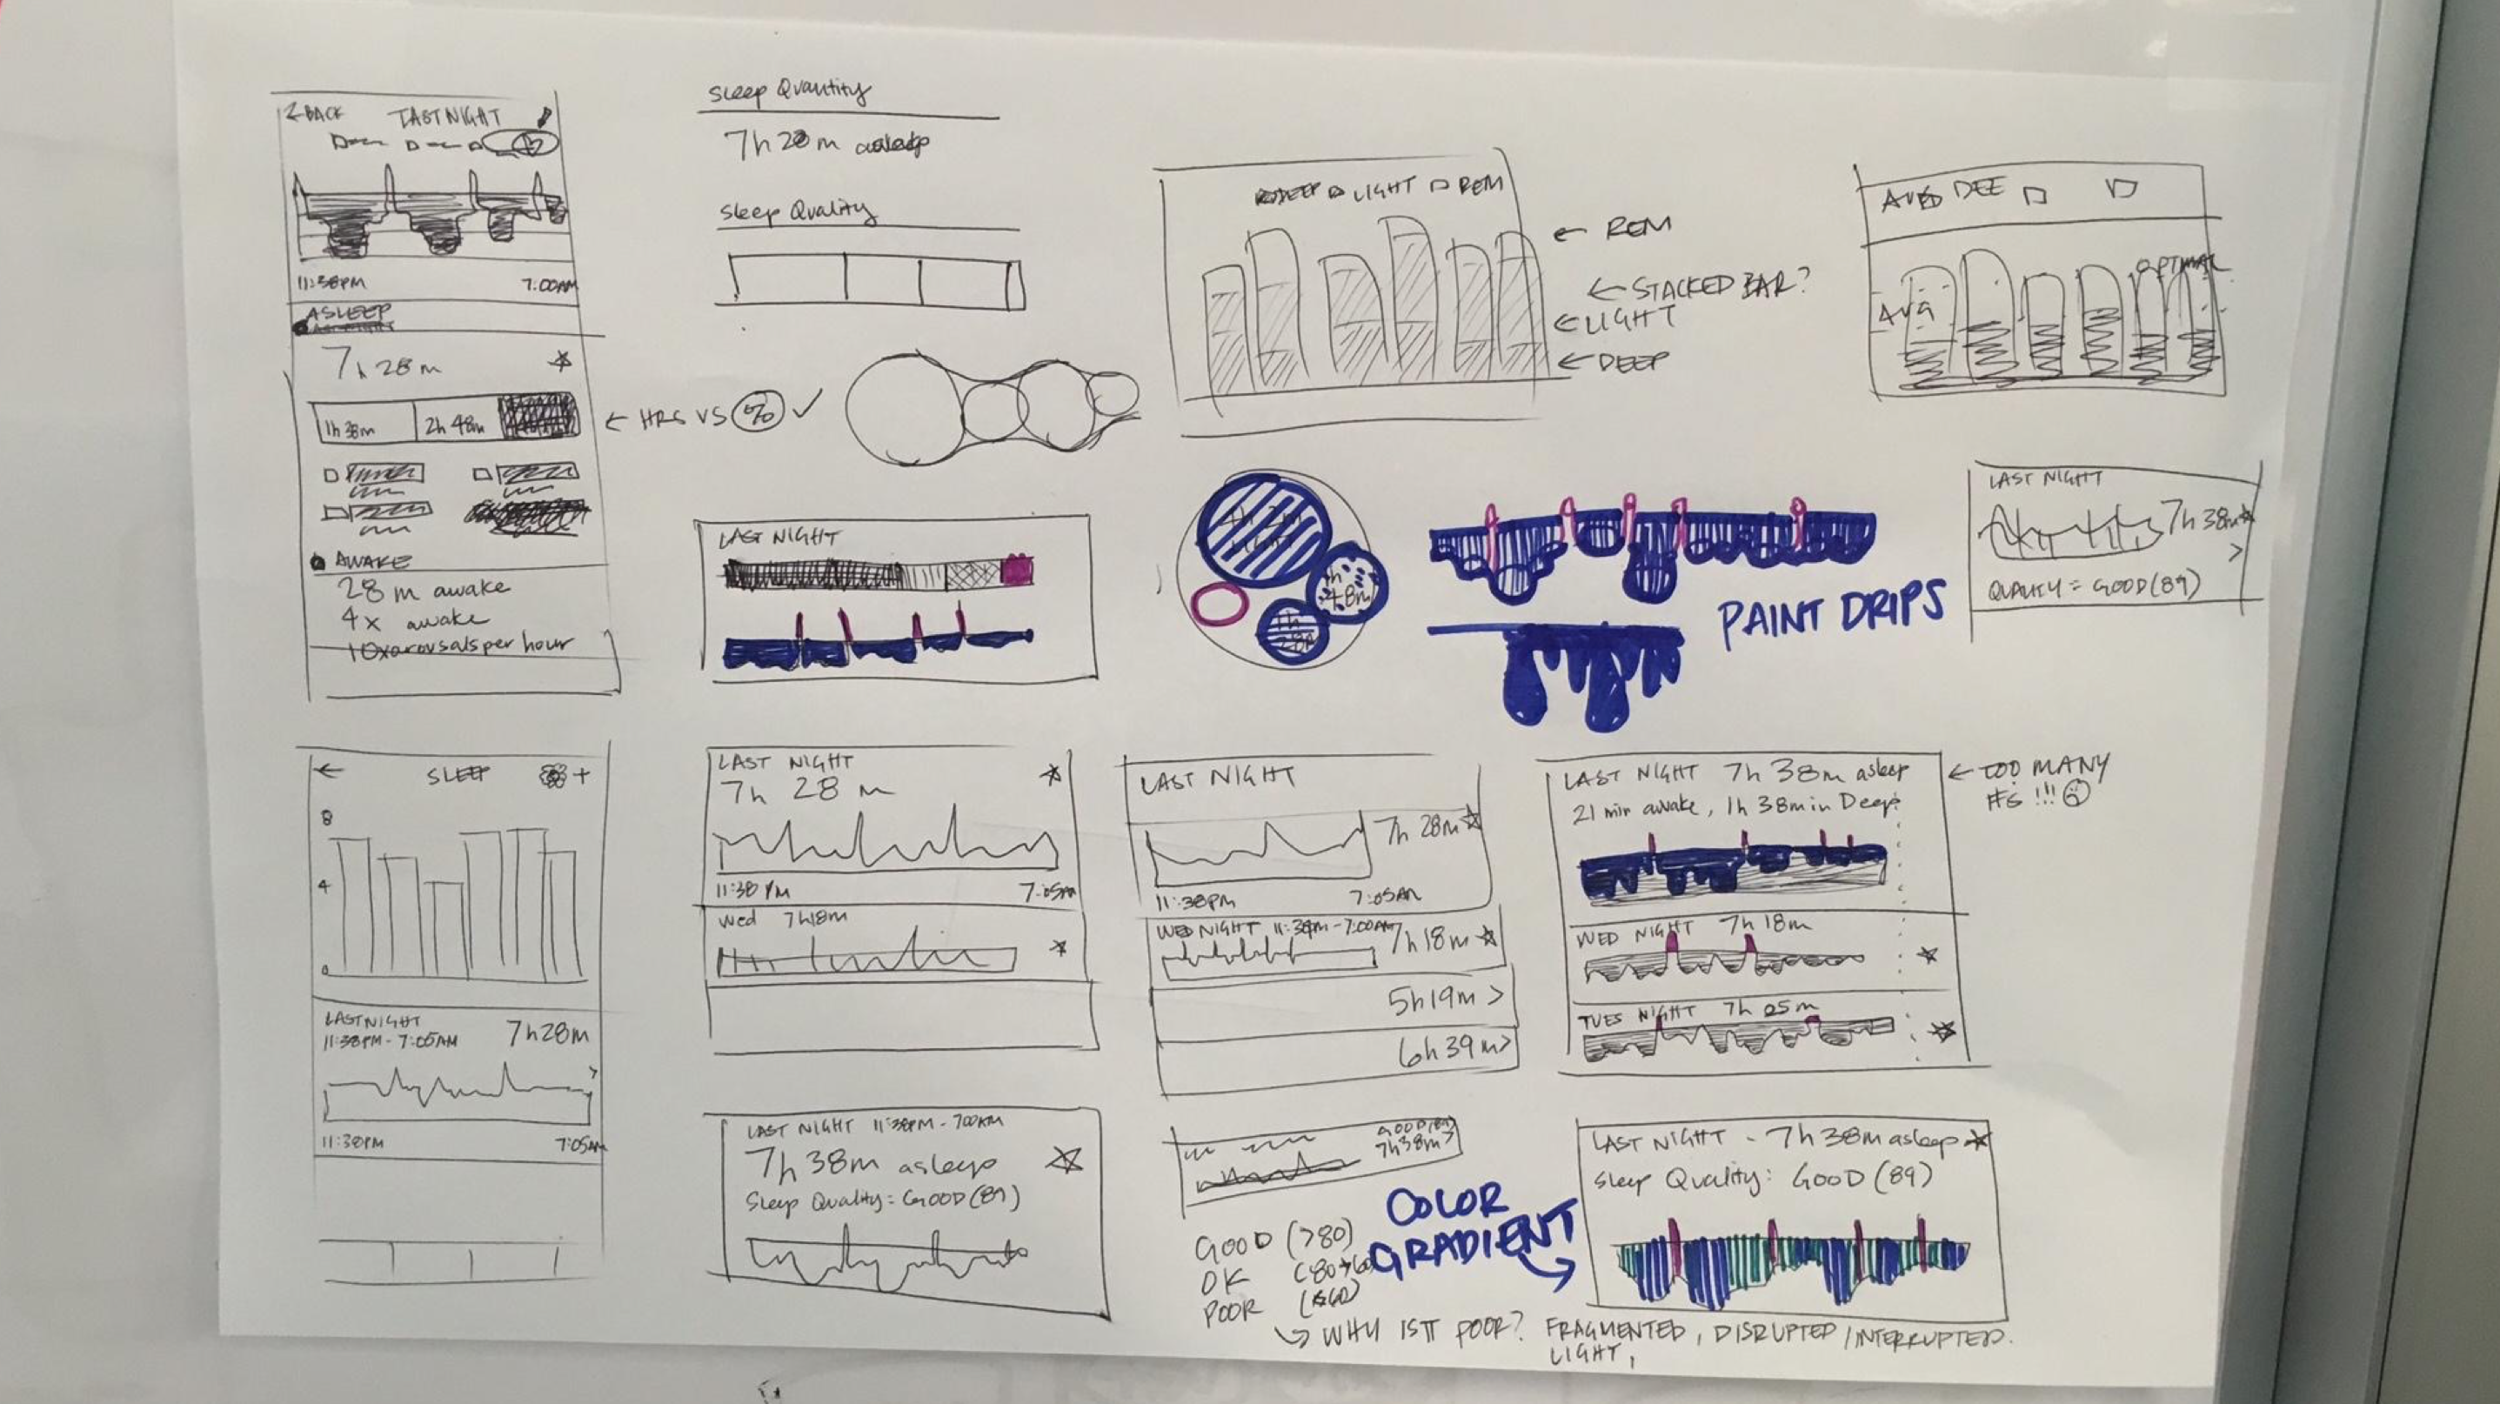 BACK LAST NIGHT
11:38PM 7:00AM
ASLEEP
7h 28m
1h 38m 2h 48m
← HRS VS % ✓
AWAKE
28 m awake
4x awake
10x arousals per hour
Sleep Quantity
7h 28m asleep
Sleep Quality
DEEP LIGHT REM
← REM
← STACKED BAR?
← LIGHT
← DEEP
AVG DEE
OPTIMAL
AVG
LAST NIGHT
48m
PAINT DRIPS
LAST NIGHT
7h 38m
>
QUALITY = GOOD (89)
← SLEEP +
8
4
0
LAST NIGHT
11:38PM - 7:05AM 7h28m
>
11:38PM 7:05AM
LAST NIGHT
7h 28 m
11:38 PM 7:05AM
Wed 7h18m
LAST NIGHT
7h 28m
11:38PM 7:05AM
WED NIGHT 11:38PM - 7:00AM 7h 18m
5h19m >
6h 39m >
LAST NIGHT 7h 38m asleep
21 min awake, 1h 38min Deep
WED NIGHT 7h 18m
TUES NIGHT 7h 05m
← TOO MANY
#s !!!
LAST NIGHT 11:38PM - 7:00AM
7h 38m asleep
Sleep Quality = GOOD (89)
GOOD (89)
7h38m >
GOOD (>80)
OK
POOR (<60)
→ WHY IS IT POOR? FRAGMENTED, DISRUPTED / INTERRUPTED.
LIGHT,
COLOR
GRADIENT
LAST NIGHT - 7h 38m asleep
Sleep Quality: GOOD (89)